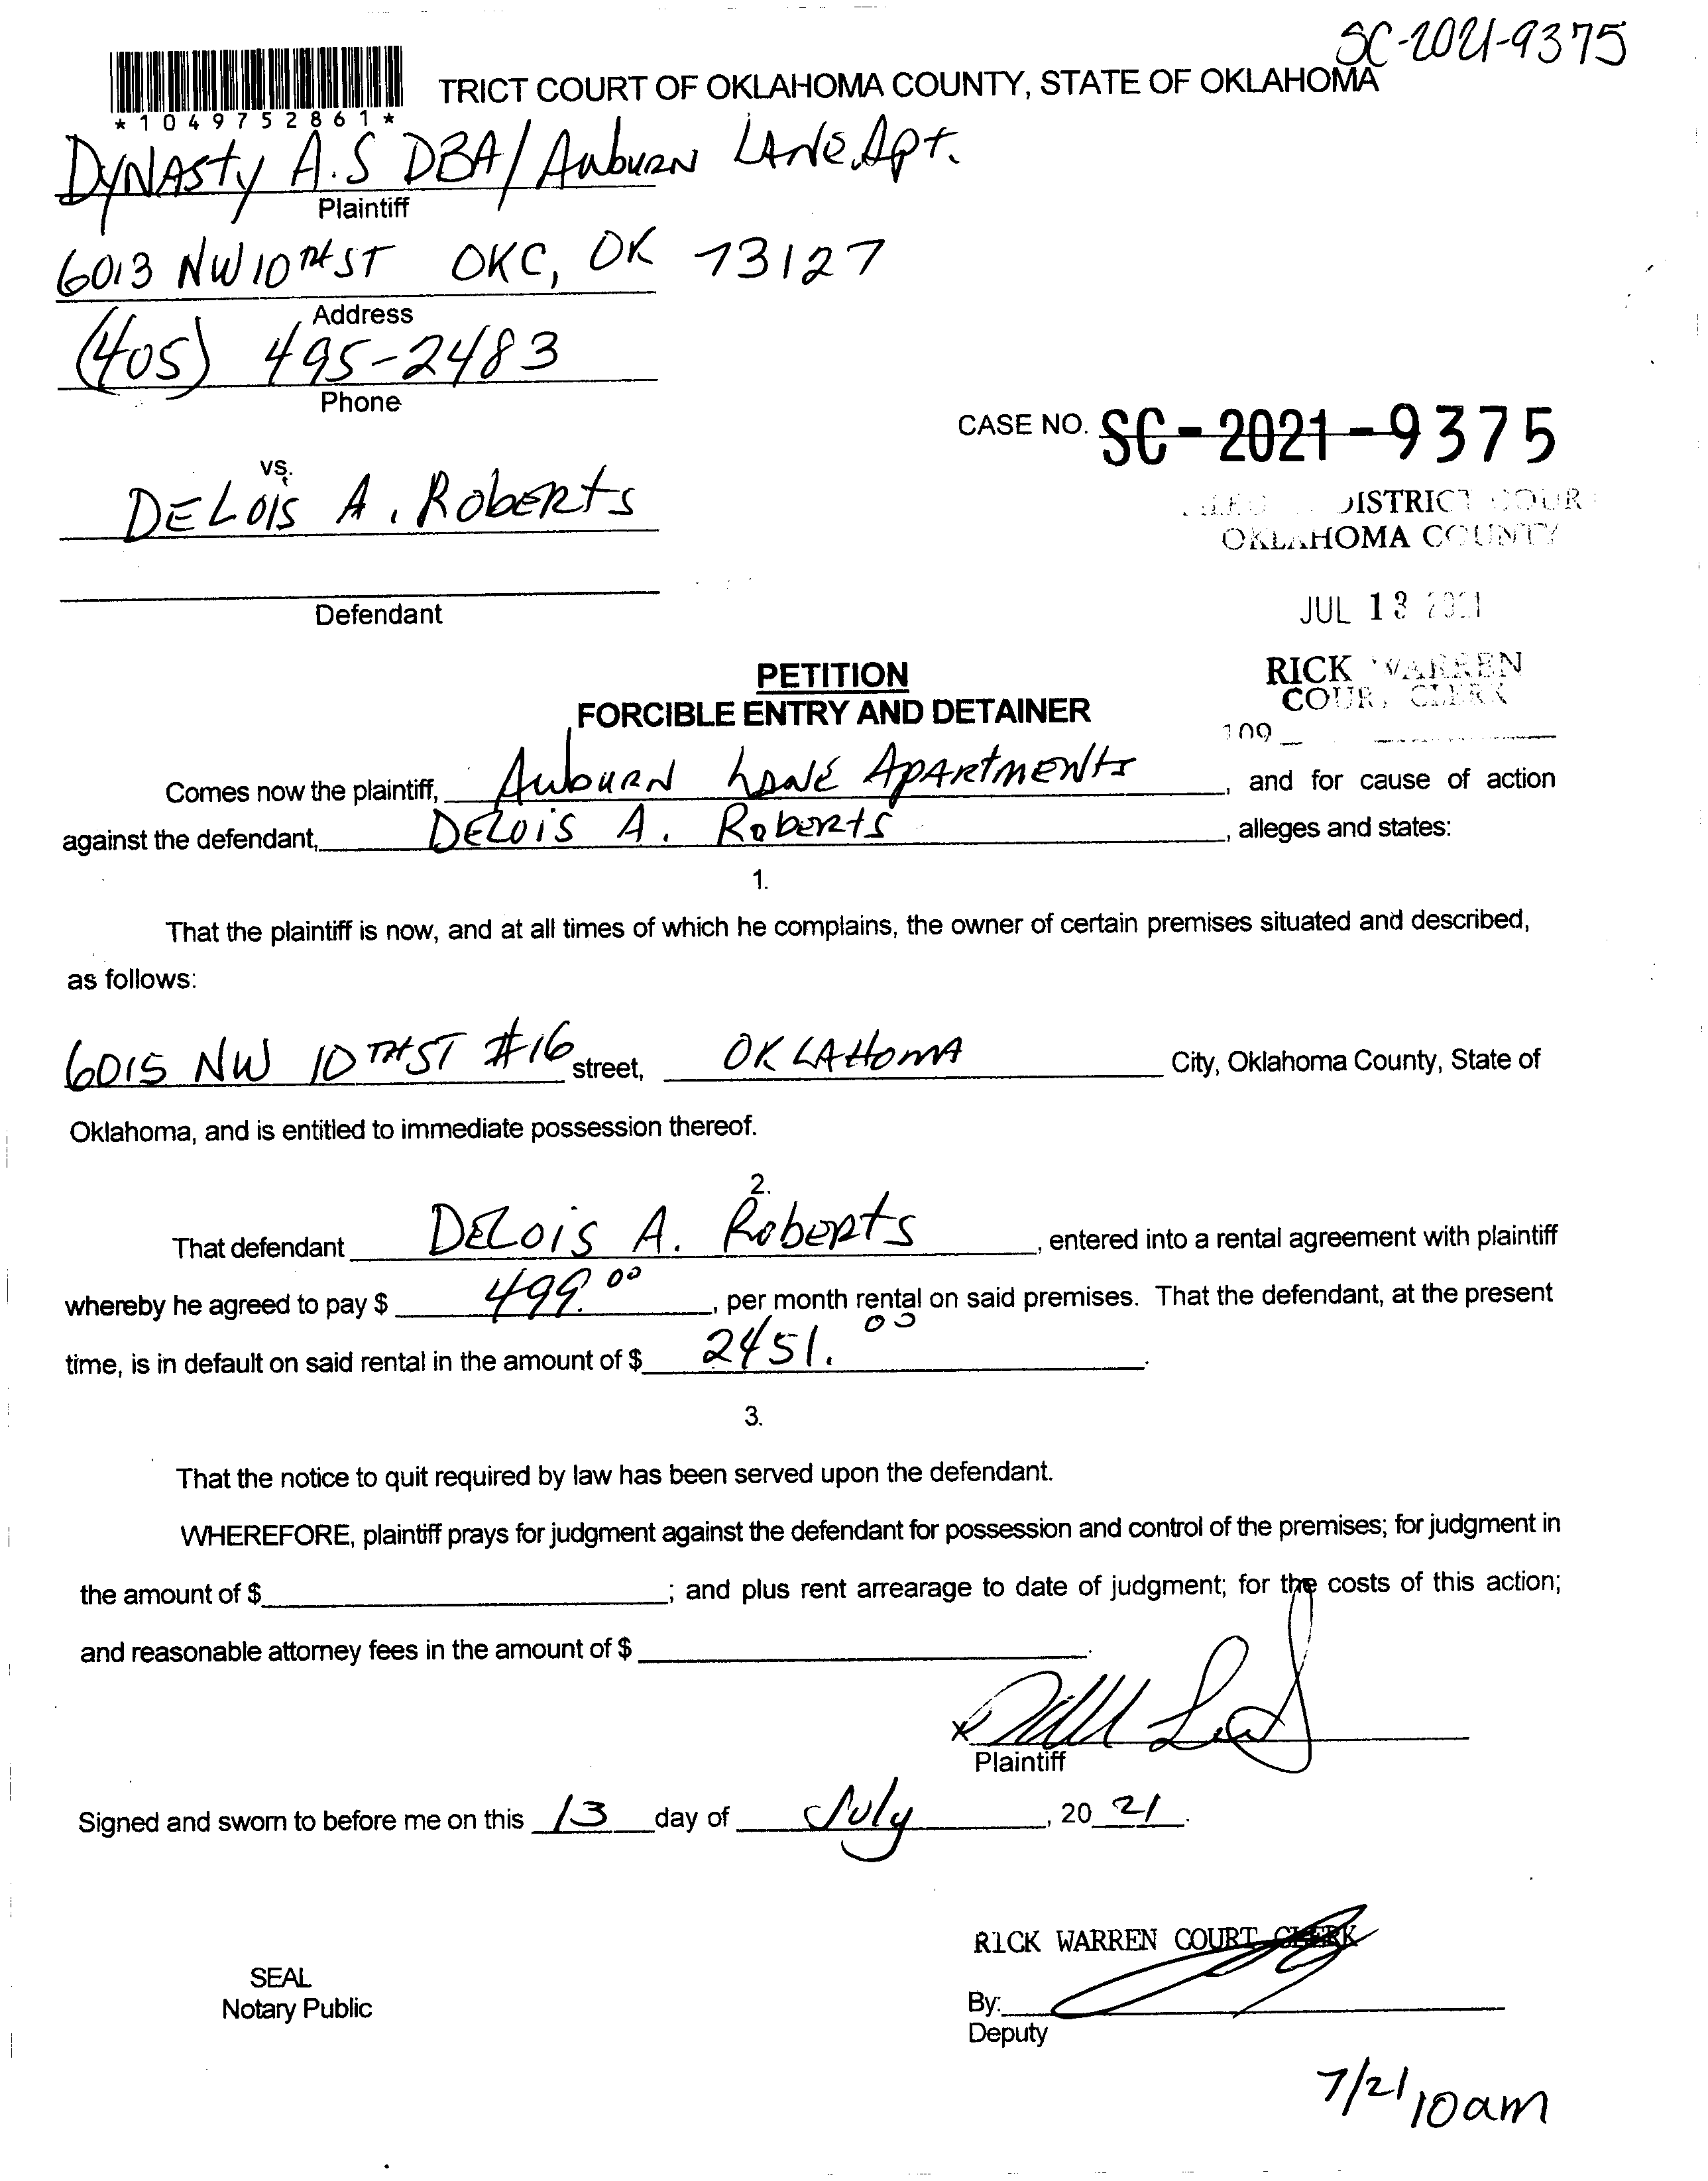 SC-2021-9375
TRICT COURT OF OKLAHOMA COUNTY, STATE OF OKLAHOMA
*1049752861*
DYNASTY A.S DBA/ AUBURN LANE Apt.
Plaintiff
6013 NW 10TH ST OKC, OK 73127
Address
(405) 495-2483
Phone
CASE NO. SC-2021-9375
vs.
DELOIS A. ROBERTS
DISTRICT COUR
OKLAHOMA COUNTY
Defendant
JUL 13 2021
RICK WARREN
COURT CLERK
109
PETITION
FORCIBLE ENTRY AND DETAINER
Comes now the plaintiff, AUBURN LANE APARTMENTS, and for cause of action
against the defendant, DELOIS A. ROBERTS, alleges and states:
1.
That the plaintiff is now, and at all times of which he complains, the owner of certain premises situated and described,
as follows:
6015 NW 10TH ST #16 street, OKLAHOMA City, Oklahoma County, State of
Oklahoma, and is entitled to immediate possession thereof.
2.
That defendant DELOIS A. ROBERTS, entered into a rental agreement with plaintiff
whereby he agreed to pay $ 499.00, per month rental on said premises. That the defendant, at the present
time, is in default on said rental in the amount of $ 2451.00.
3.
That the notice to quit required by law has been served upon the defendant.
WHEREFORE, plaintiff prays for judgment against the defendant for possession and control of the premises; for judgment in
the amount of $ ; and plus rent arrearage to date of judgment; for the costs of this action;
and reasonable attorney fees in the amount of $ .
X
Plaintiff
Signed and sworn to before me on this 13 day of July, 20 21.
RICK WARREN COURT CLERK
SEAL
Notary Public
By:
Deputy
7/21 10am